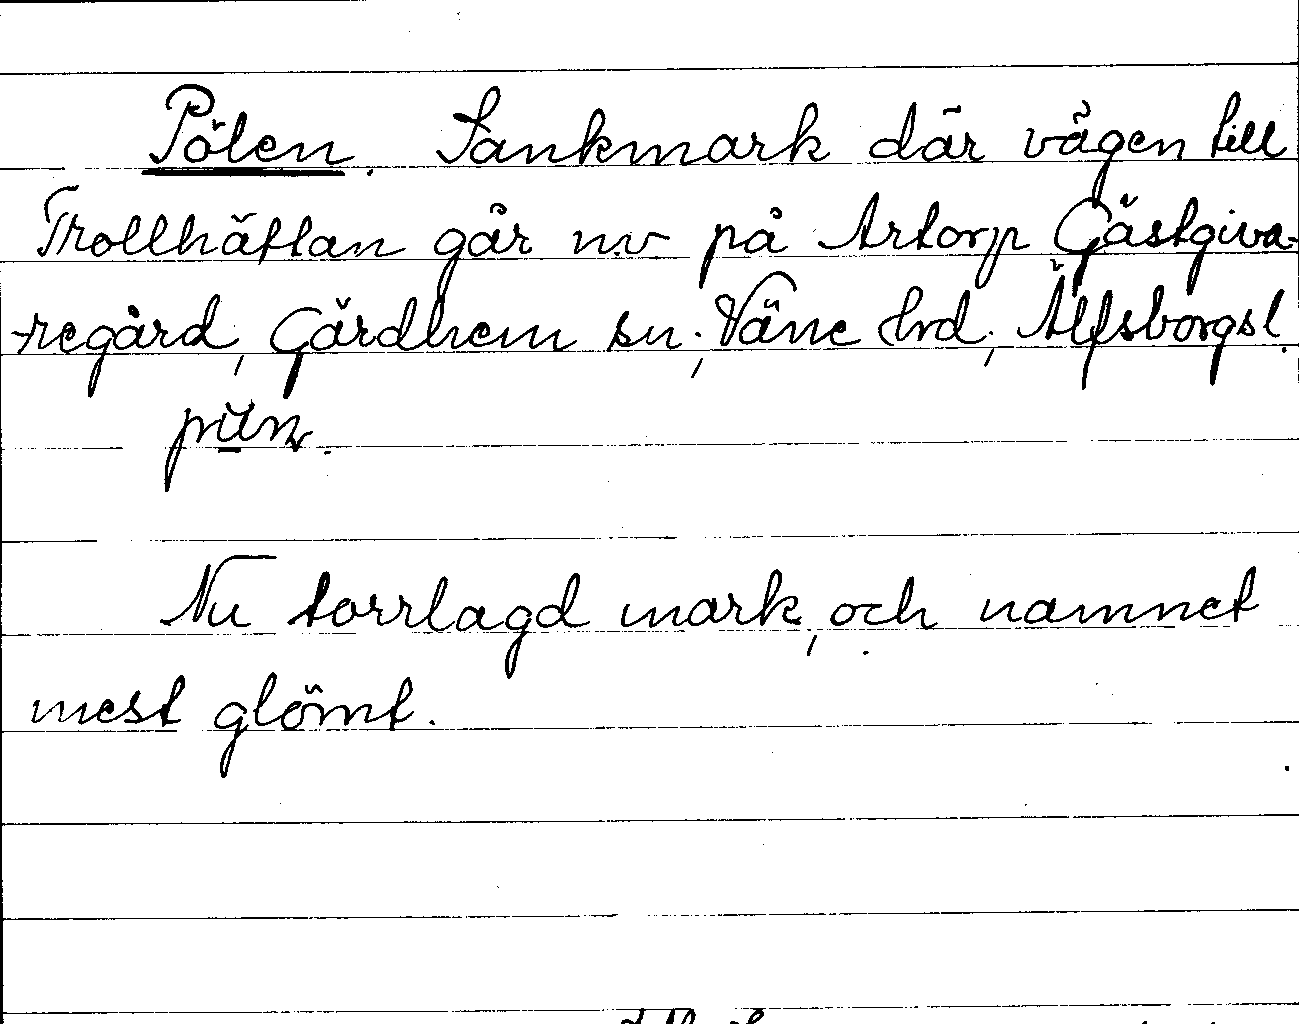 Pölen. Sankmark där vägen till
Trollhättan går nv på Artorp Gästgiva-
-regård, Gärdhem sn; Väne hrd; Älfsborgs l.
Nu torrlagd mark, och namnet
mest glömt.